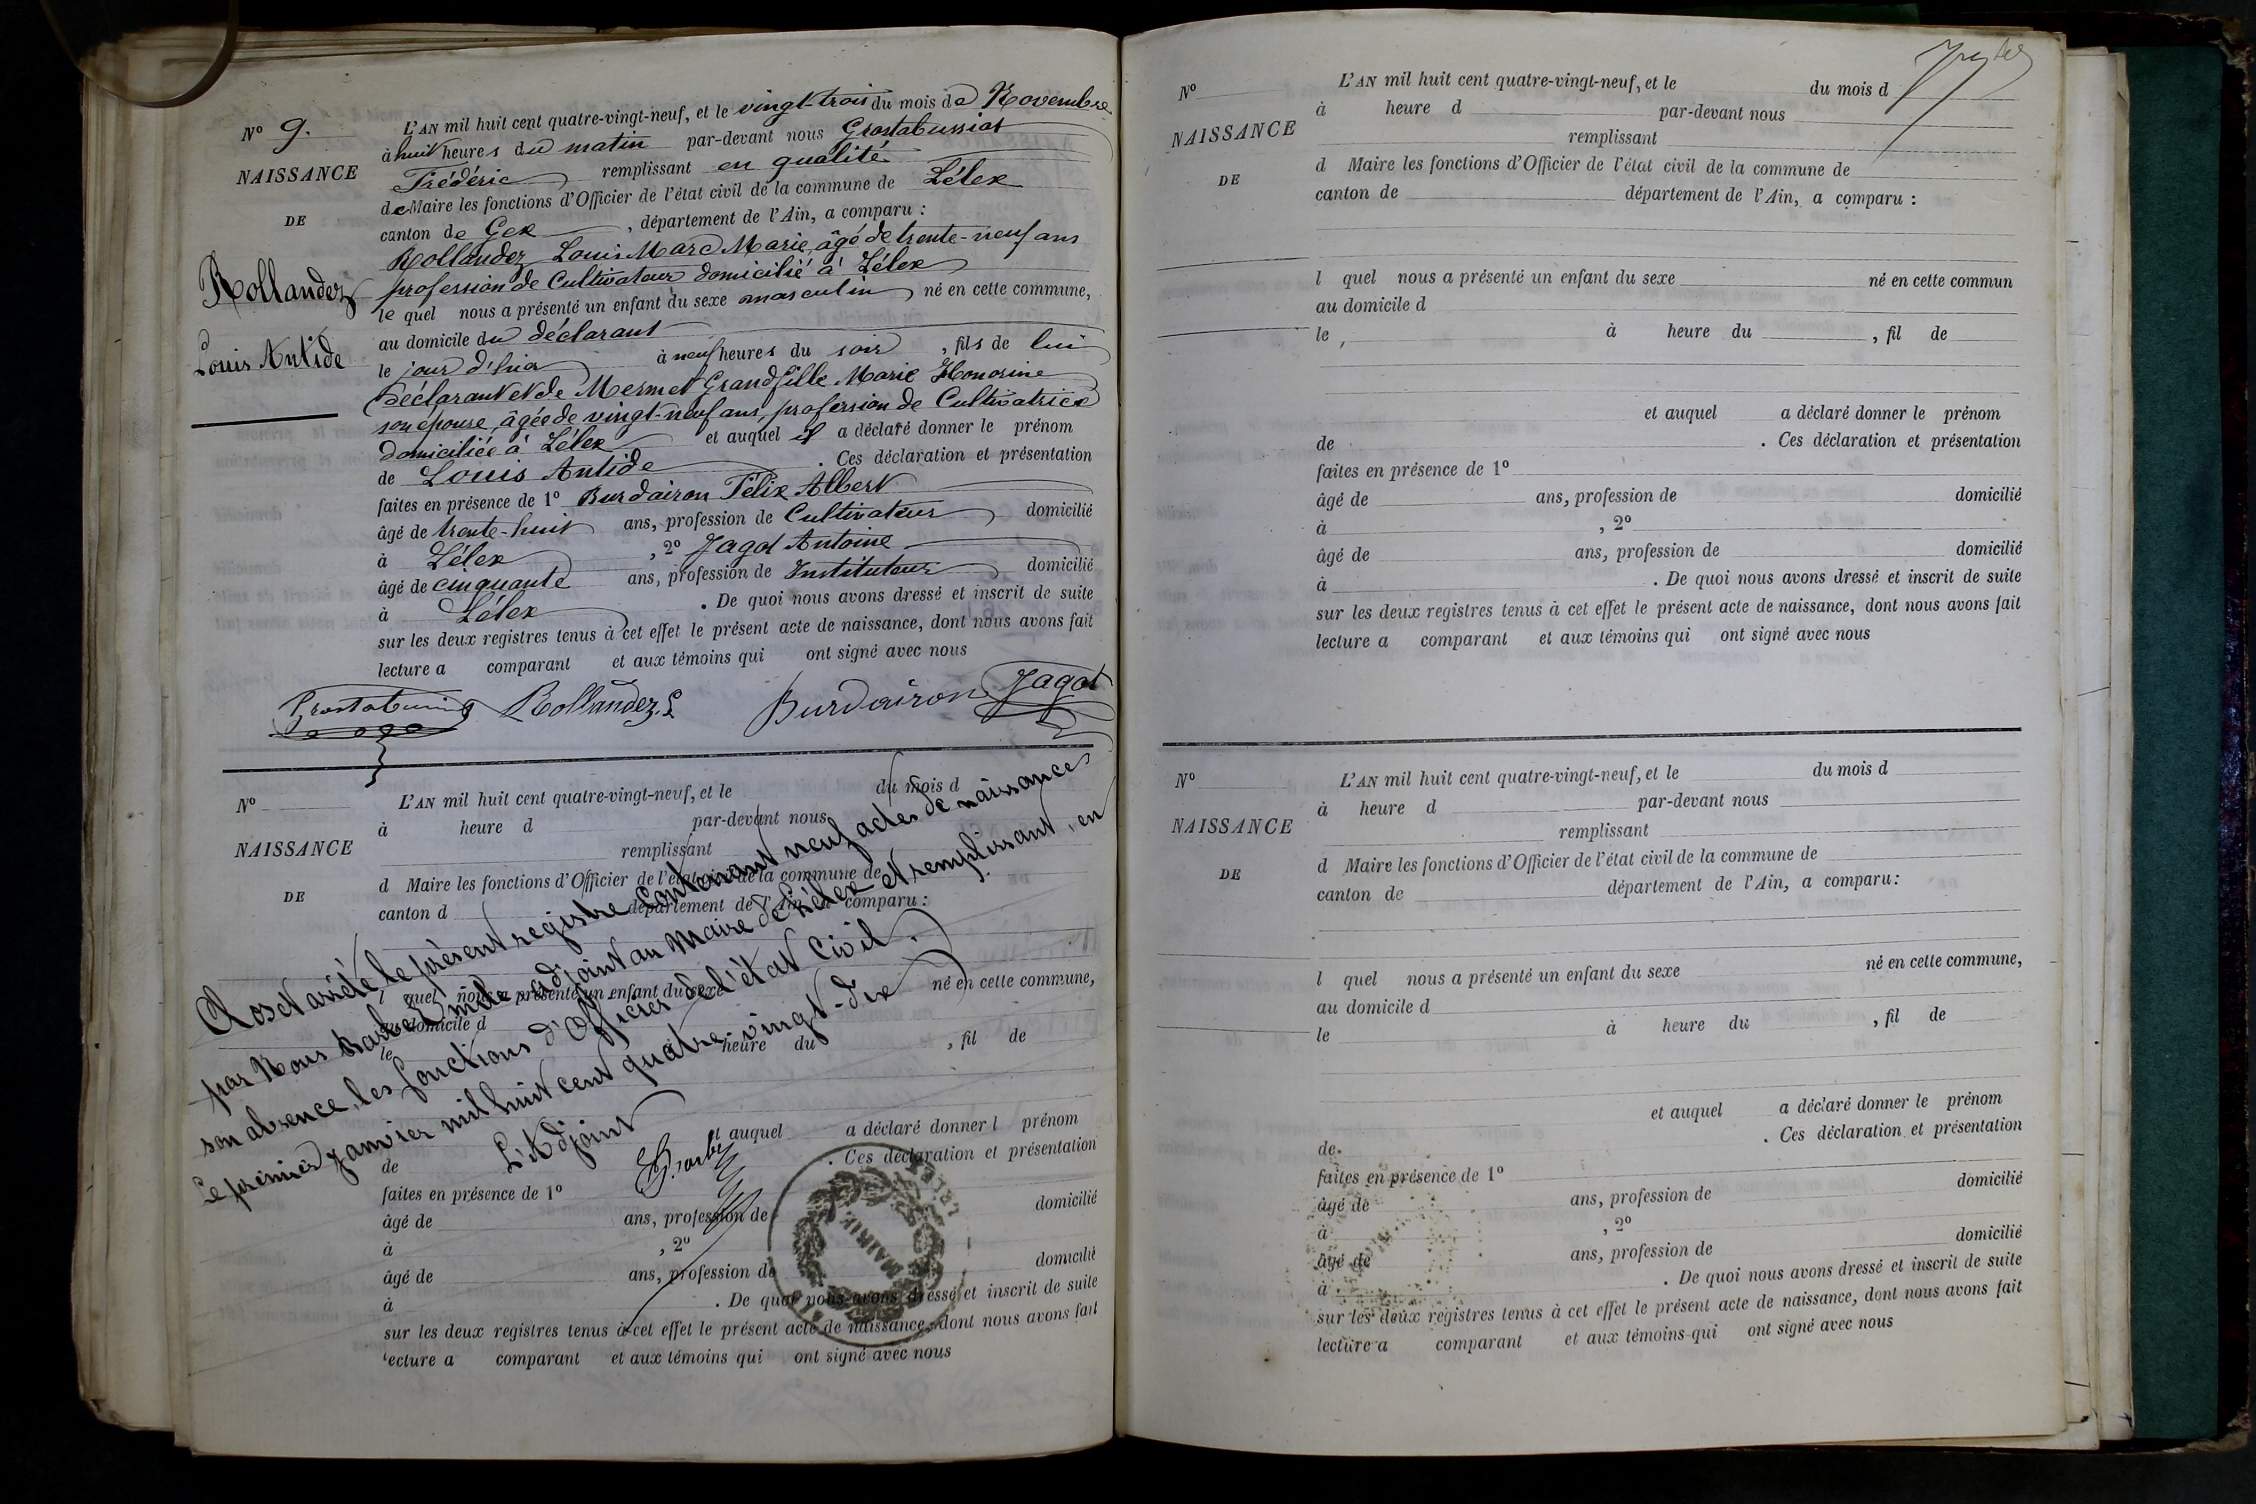 N° 9.
NAISSANCE
DE
Rollandez
Louis Antide
L'AN mil huit cent quatre-vingt-neuf, et le vingt-trois du mois de Novembre
à huit heures du matin par-devant nous Grostabussiat
Frédéric remplissant en qualité
de Maire les fonctions d'Officier de l'état civil de la commune de Lélex
canton de Gex, département de l'Ain, a comparu :
Rollandez Louis Marc Marie, âgé de trente-neuf ans
profession de Cultivateur domicilié à Lélex
lequel nous a présenté un enfant du sexe masculin né en cette commune,
au domicile du déclarant
le jour d'hier à neuf heures du soir, fils de lui
déclarant et de Mermet Grandfille Marie Honorine
son épouse, âgée de vingt-neuf ans, profession de Cultivatrice
domiciliée à Lélex et auquel il a déclaré donner le prénom
de Louis Antide. Ces déclaration et présentation
faites en présence de 1° Burdairon Félix Albert
âgé de trente-huit ans, profession de Cultivateur domicilié
à Lélex, 2° Jagot Antoine
âgé de cinquante ans, profession de Instituteur domicilié
à Lélex. De quoi nous avons dressé et inscrit de suite
sur les deux registres tenus à cet effet le présent acte de naissance, dont nous avons fait
lecture a comparant et aux témoins qui ont signé avec nous
Rollandez. L Burdairon Jagot
N°
NAISSANCE
DE
L'AN mil huit cent quatre-vingt-neuf, et le du mois d
à heure d par-devant nous
remplissant
d Maire les fonctions d'Officier de l'état civil de la commune de
canton d département de l'Ain, a comparu :
l quel nous a présenté un enfant du sexe né en cette commune,
au domicile d
le à heure du , fil de
et auquel a déclaré donner l prénom
de . Ces déclaration et présentation
faites en présence de 1°
âgé de ans, profession de domicilié
à , 2°
âgé de ans, profession de domicilié
à . De quoi nous avons dressé et inscrit de suite
sur les deux registres tenus à cet effet le présent acte de naissance, dont nous avons fait
lecture a comparant et aux témoins qui ont signé avec nous
Clos et arrêté le présent registre contenant neuf actes de naissances
par Nous Barbe Emile adjoint au Maire de Lélex et remplissant, en
son absence, les fonctions d'Officier de l'état Civil.
Le premier Janvier mil huit cent quatre-vingt-dix
L'Adjoint
E. Barbe
MAIRIE
N°
NAISSANCE
DE
L'AN mil huit cent quatre-vingt-neuf, et le du mois d
à heure d par-devant nous
remplissant
d Maire les fonctions d'Officier de l'état civil de la commune de
canton de département de l'Ain, a comparu :
l quel nous a présenté un enfant du sexe né en cette commun
au domicile d
le , à heure du , fil de
et auquel a déclaré donner le prénom
de . Ces déclaration et présentation
faites en présence de 1°
âgé de ans, profession de domicilié
à , 2°
âgé de ans, profession de domicilié
à . De quoi nous avons dressé et inscrit de suite
sur les deux registres tenus à cet effet le présent acte de naissance, dont nous avons fait
lecture a comparant et aux témoins qui ont signé avec nous
N°
NAISSANCE
DE
L'AN mil huit cent quatre-vingt-neuf, et le du mois d
à heure d par-devant nous
remplissant
d Maire les fonctions d'Officier de l'état civil de la commune de
canton de département de l'Ain, a comparu :
l quel nous a présenté un enfant du sexe né en cette commune,
au domicile d
le à heure du , fil de
et auquel a déclaré donner le prénom
de . Ces déclaration et présentation
faites en présence de 1°
âgé de ans, profession de domicilié
à , 2°
âgé de ans, profession de domicilié
à . De quoi nous avons dressé et inscrit de suite
sur les deux registres tenus à cet effet le présent acte de naissance, dont nous avons fait
lecture a comparant et aux témoins qui ont signé avec nous